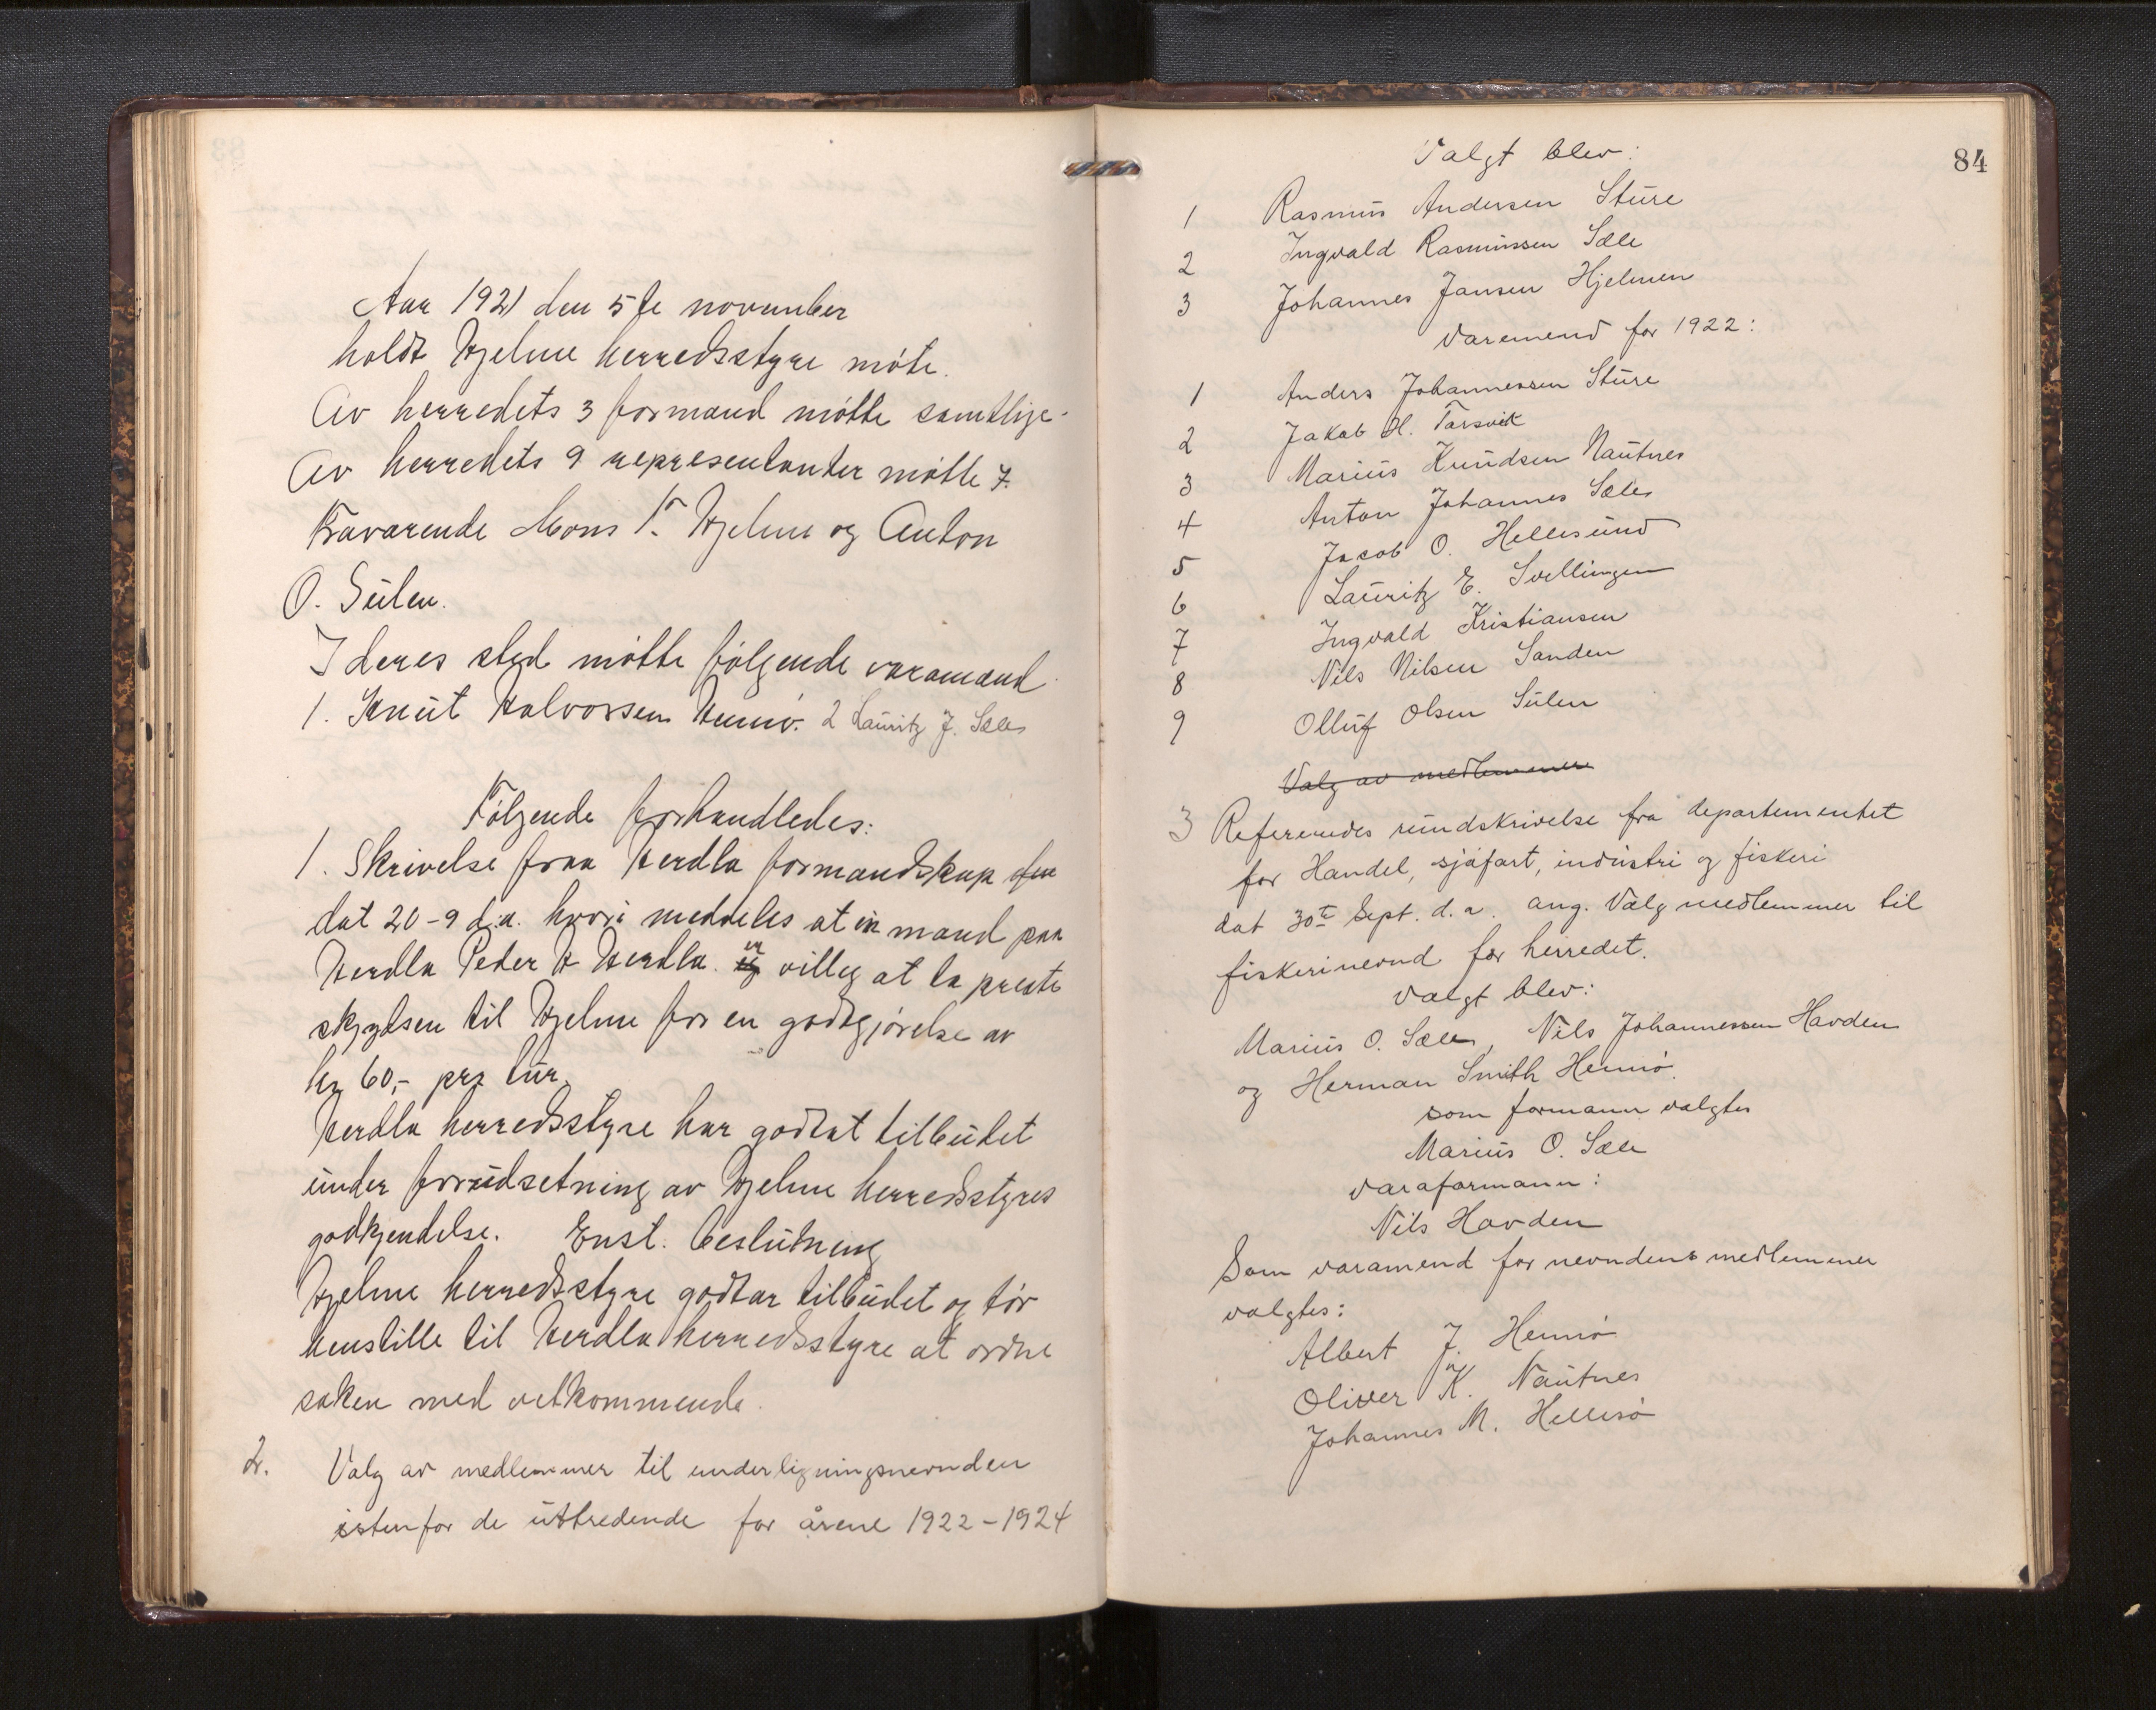 Aar 1921 den 5te november
holdt Hjelme herredsstyre møte.
Av herredets 3 formænd møtte samtlige.
Av herredets 9 representanter møtte 7.
Fraværende Mons K. Hjelme og Anton
O. Sulen.
I deres sted møtte følgende varamænd
1. Knut Halvorsen Hennø. 2 Lauritz J. Sæle
Følgende forhandledes:
1. Skrivelse fraa Herdla formandskap
dat 20-9 d.a. hvori meddeles at en mand paa
Herdla Peder H Herdla er villig at ta preste
skydsen til Hjelme for en godtgjørelse av
kr 60,- pr tur.
Herdla herredsstyre har godtat tilbudet
under forutdsetning av Hjelme herredsstyres
godkjendelse. Enst. beslutning
Hjelme herredsstyre godtar tilbudet og tør
henstille til Herdla herredsstyre at ordne
saken med vetkommende.
2. Valg av medlemmer til underligningsnevnden
istenfor de uttredende for årene 1922-1924
84
Valgt blev:
1 Rasmus Andersen Sture
2 Ingvald Rasmussen Sæle
3 Johannes Jansen Hjelmen
Varemend for 1922:
1 Anders Johannessen Sture
2 Jakob H. Tarsvik
3 Marius Knudsen Nautnes
4 Anton Johannes Sæle
5 Jacob O. Hellesund
6 Lauritz E. Svellingen
7 Ingvald Kristiansen
8 Nils Nilsen Sanden
9 Olluf Olsen Sulen
Valg av medlemmer
3 Refereredes rundskrivelse fra departementet
for Handel, sjøfart, industri og fiskeri
dat 30te Sept. d.a. ang. Valg medlemmer til
fiskerinevnd for herredet.
Valgt blev:
Marius O. Sæle, Nils Johannessen Havden
og Herman Smith Hennø.
som formann valgtes
Marius O. Sæle
Varaformann:
Nils Havden
Som varamend for nevndens medlemmer
valgtes:
Albert J. Hennø
Oliver K. Nautnes
Johannes M. Hellisø